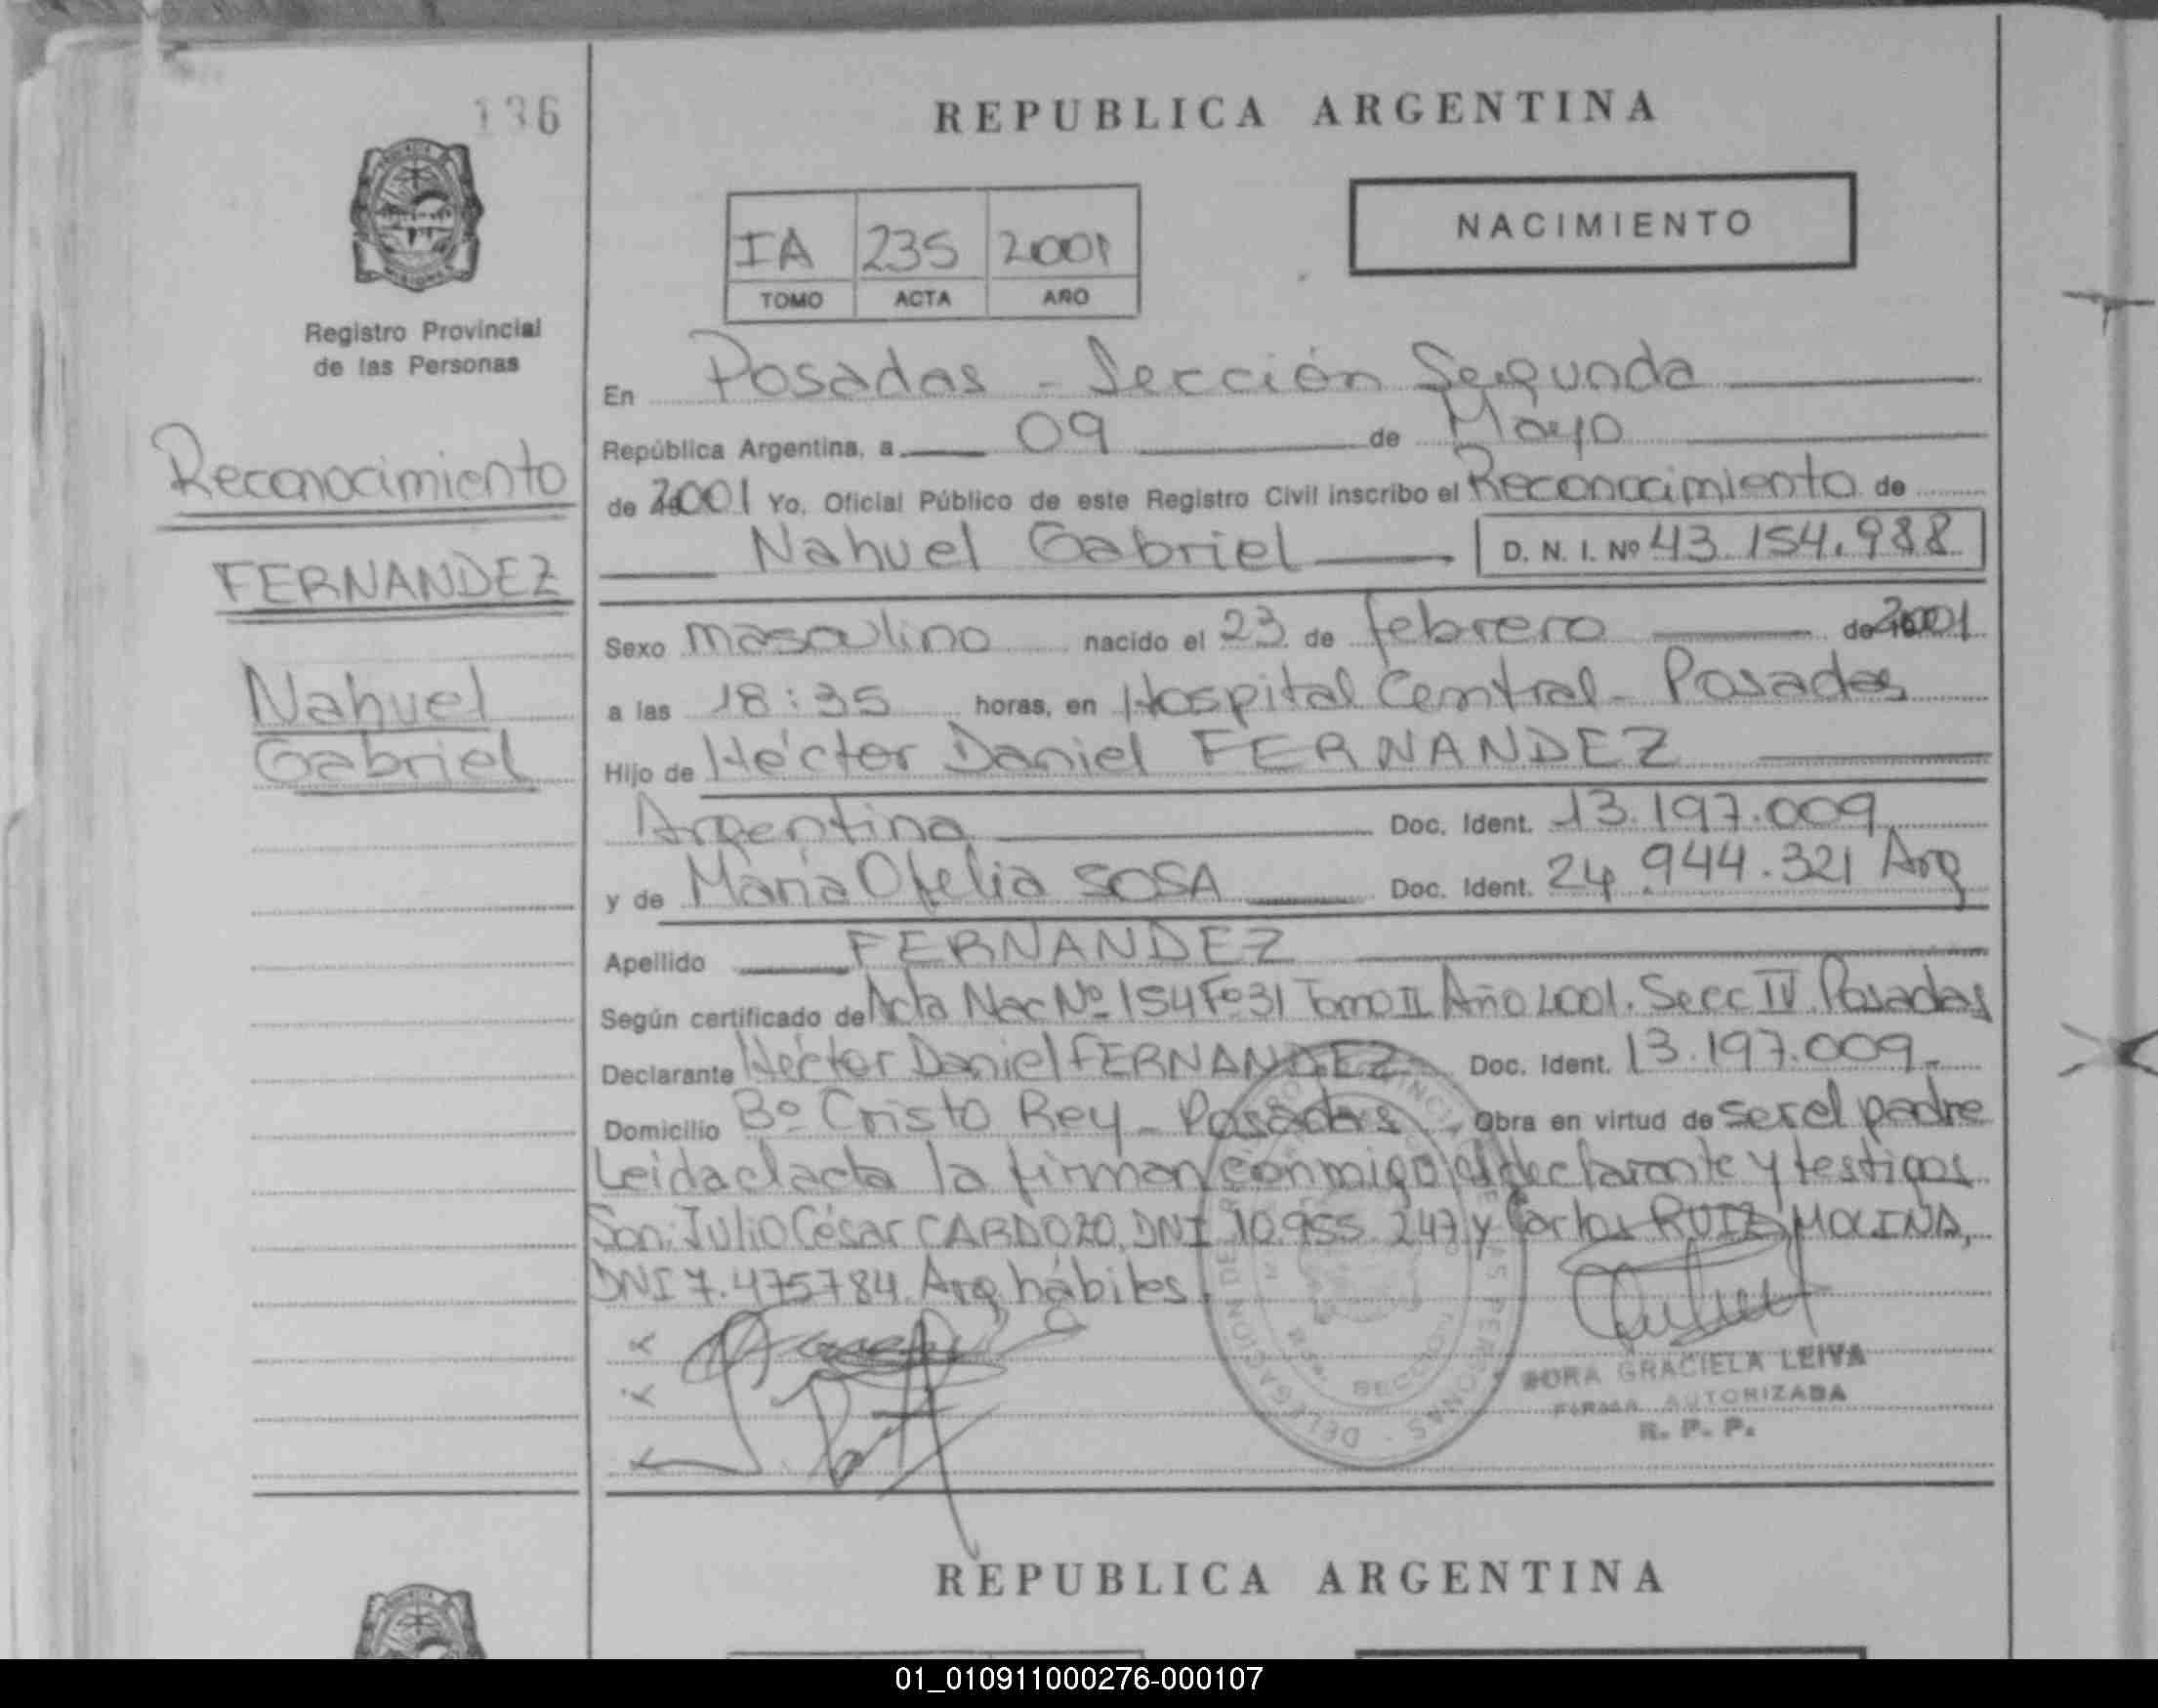 136
REPUBLICA ARGENTINA
NACIMIENTO
IA 235 2001
TOMO ACTA AÑO
Registro Provincial
de las Personas
Reconocimiento
FERNANDEZ
Nahuel
Gabriel
En Posadas - Sección Segunda
República Argentina, a 09 de Mayo
de 2001 Yo, Oficial Público de este Registro Civil inscribo el Reconocimiento de
Nahuel Gabriel D. N. I. Nº 43.154.988
Sexo masculino nacido el 23 de febrero de 2001
a las 18:35 horas, en Hospital Central - Posadas
Hijo de Héctor Daniel FERNANDEZ
Argentina Doc. Ident. 13.197.009
y de María Ofelia SOSA Doc. Ident. 24.944.321 Arg
Apellido FERNANDEZ
Según certificado de Acta Nac Nº 154 Fº 31 Tomo II Año 2001. Secc IV. Posadas
Declarante Héctor Daniel FERNANDEZ Doc. Ident. 13.197.009.-
Domicilio Bº Cristo Rey - Posadas Obra en virtud de ser el padre
Leida el acta la firman conmigo el declarante y testigos
Son: Julio César CARDOZO, DNI 10.955.247 y Carlos RUIZ MOLINA,
DNI 7.475784 Arg hábiles
GRACIELA LEIVA
FIRMA AUTORIZADA
R. P. P.
REPUBLICA ARGENTINA
01_010911000276-000107